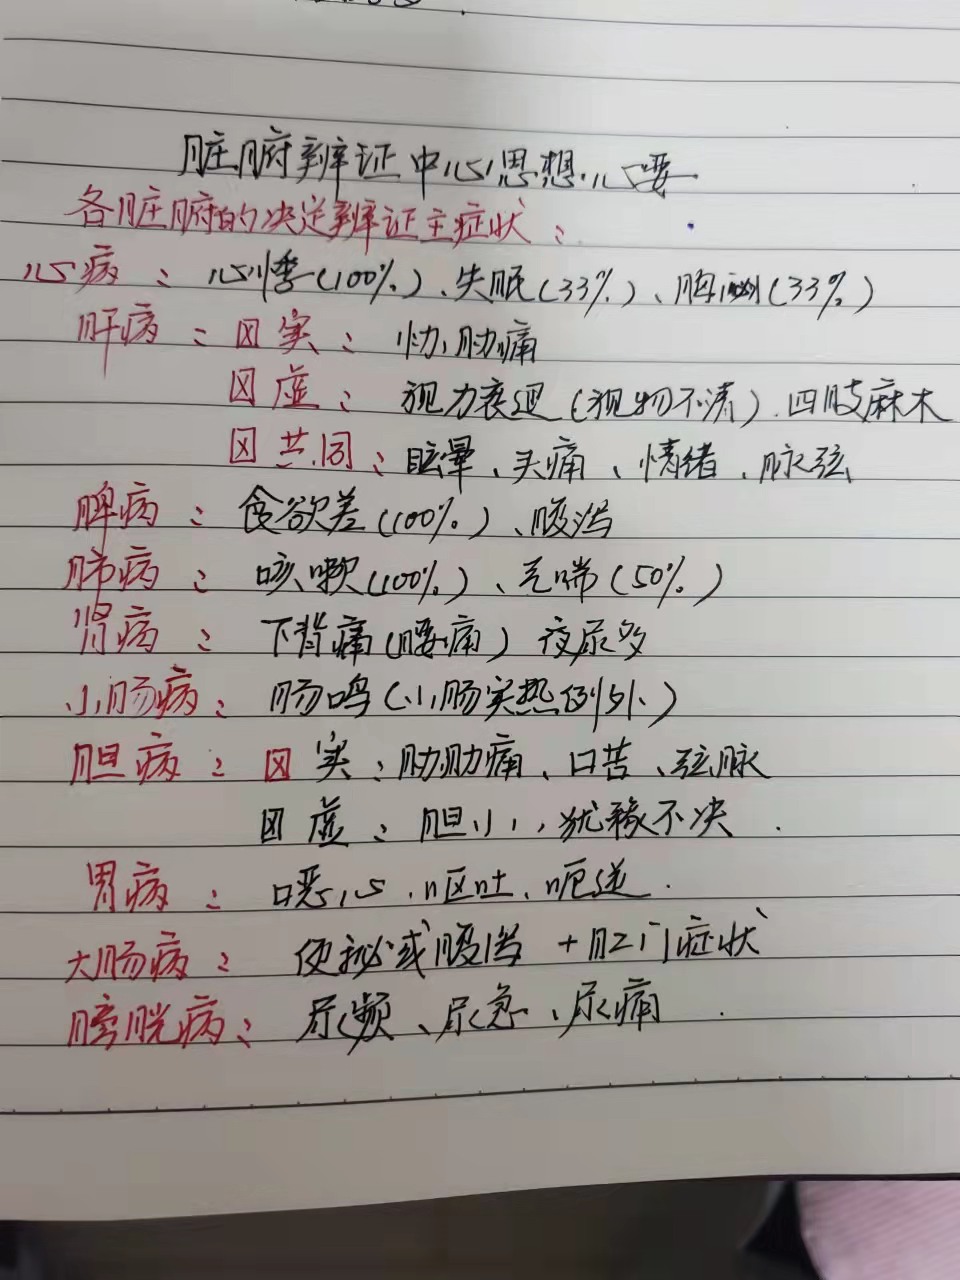 脏腑辨证中心思想心要
各脏腑的决定辨证主症状：
心病：心悸(100%)、失眠(33%)、胸闷(33%)
肝病：因实：胁肋痛
因虚：视力衰退(视物不清).四肢麻木
因共同：眩晕、头痛、情绪、脉弦
脾病：食欲差(100%)、腹泻
肺病：咳嗽(100%)、气喘(50%)
肾病：下背痛(腰痛) 夜尿多
小肠病：肠鸣(小肠实热例外)
胆病：因实：肋肋痛、口苦、弦脉
因虚：胆小，犹豫不决.
胃病：恶心.呕吐.呃逆.
大肠病：便秘或腹泻+肛门症状
膀胱病：尿频、尿急、尿痛.